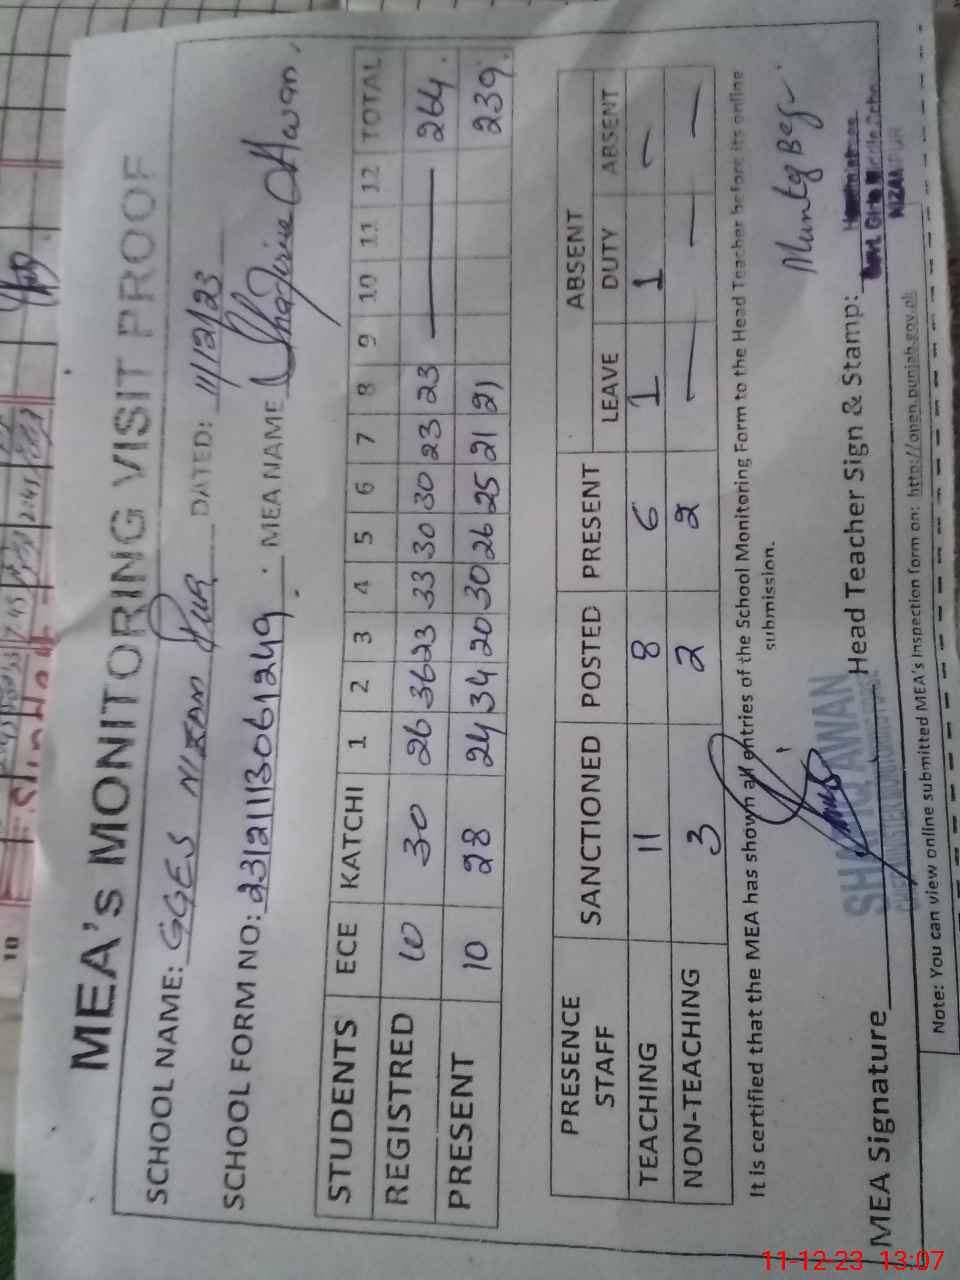 MEA's MONITORING VISIT PROOF
SCHOOL NAME: GGES NIZAM PUR DATED: 11/12/23
SCHOOL FORM NO: 23121113061249 MEA NAME Awan
STUDENTS ECE KATCHI 1 2 3 4 5 6 7 8 9 10 11 12 TOTAL
REGISTRED 10 30 26 36 23 33 30 30 23 23 — 264
PRESENT 10 28 24 34 20 30 26 25 21 21 239
PRESENCE STAFF SANCTIONED POSTED PRESENT ABSENT
LEAVE DUTY ABSENT
TEACHING 11 8 6 1 1 —
NON-TEACHING 3 2 2 — — —
It is certified that the MEA has shown all entries of the School Monitoring Form to the Head Teacher before its online
submission.
SHAFIQ AWAN
MEA Signature Head Teacher Sign & Stamp:
Note: You can view online submitted MEA's Inspection form on: http://open.punjab.gov.pk
11-12-23 13:07